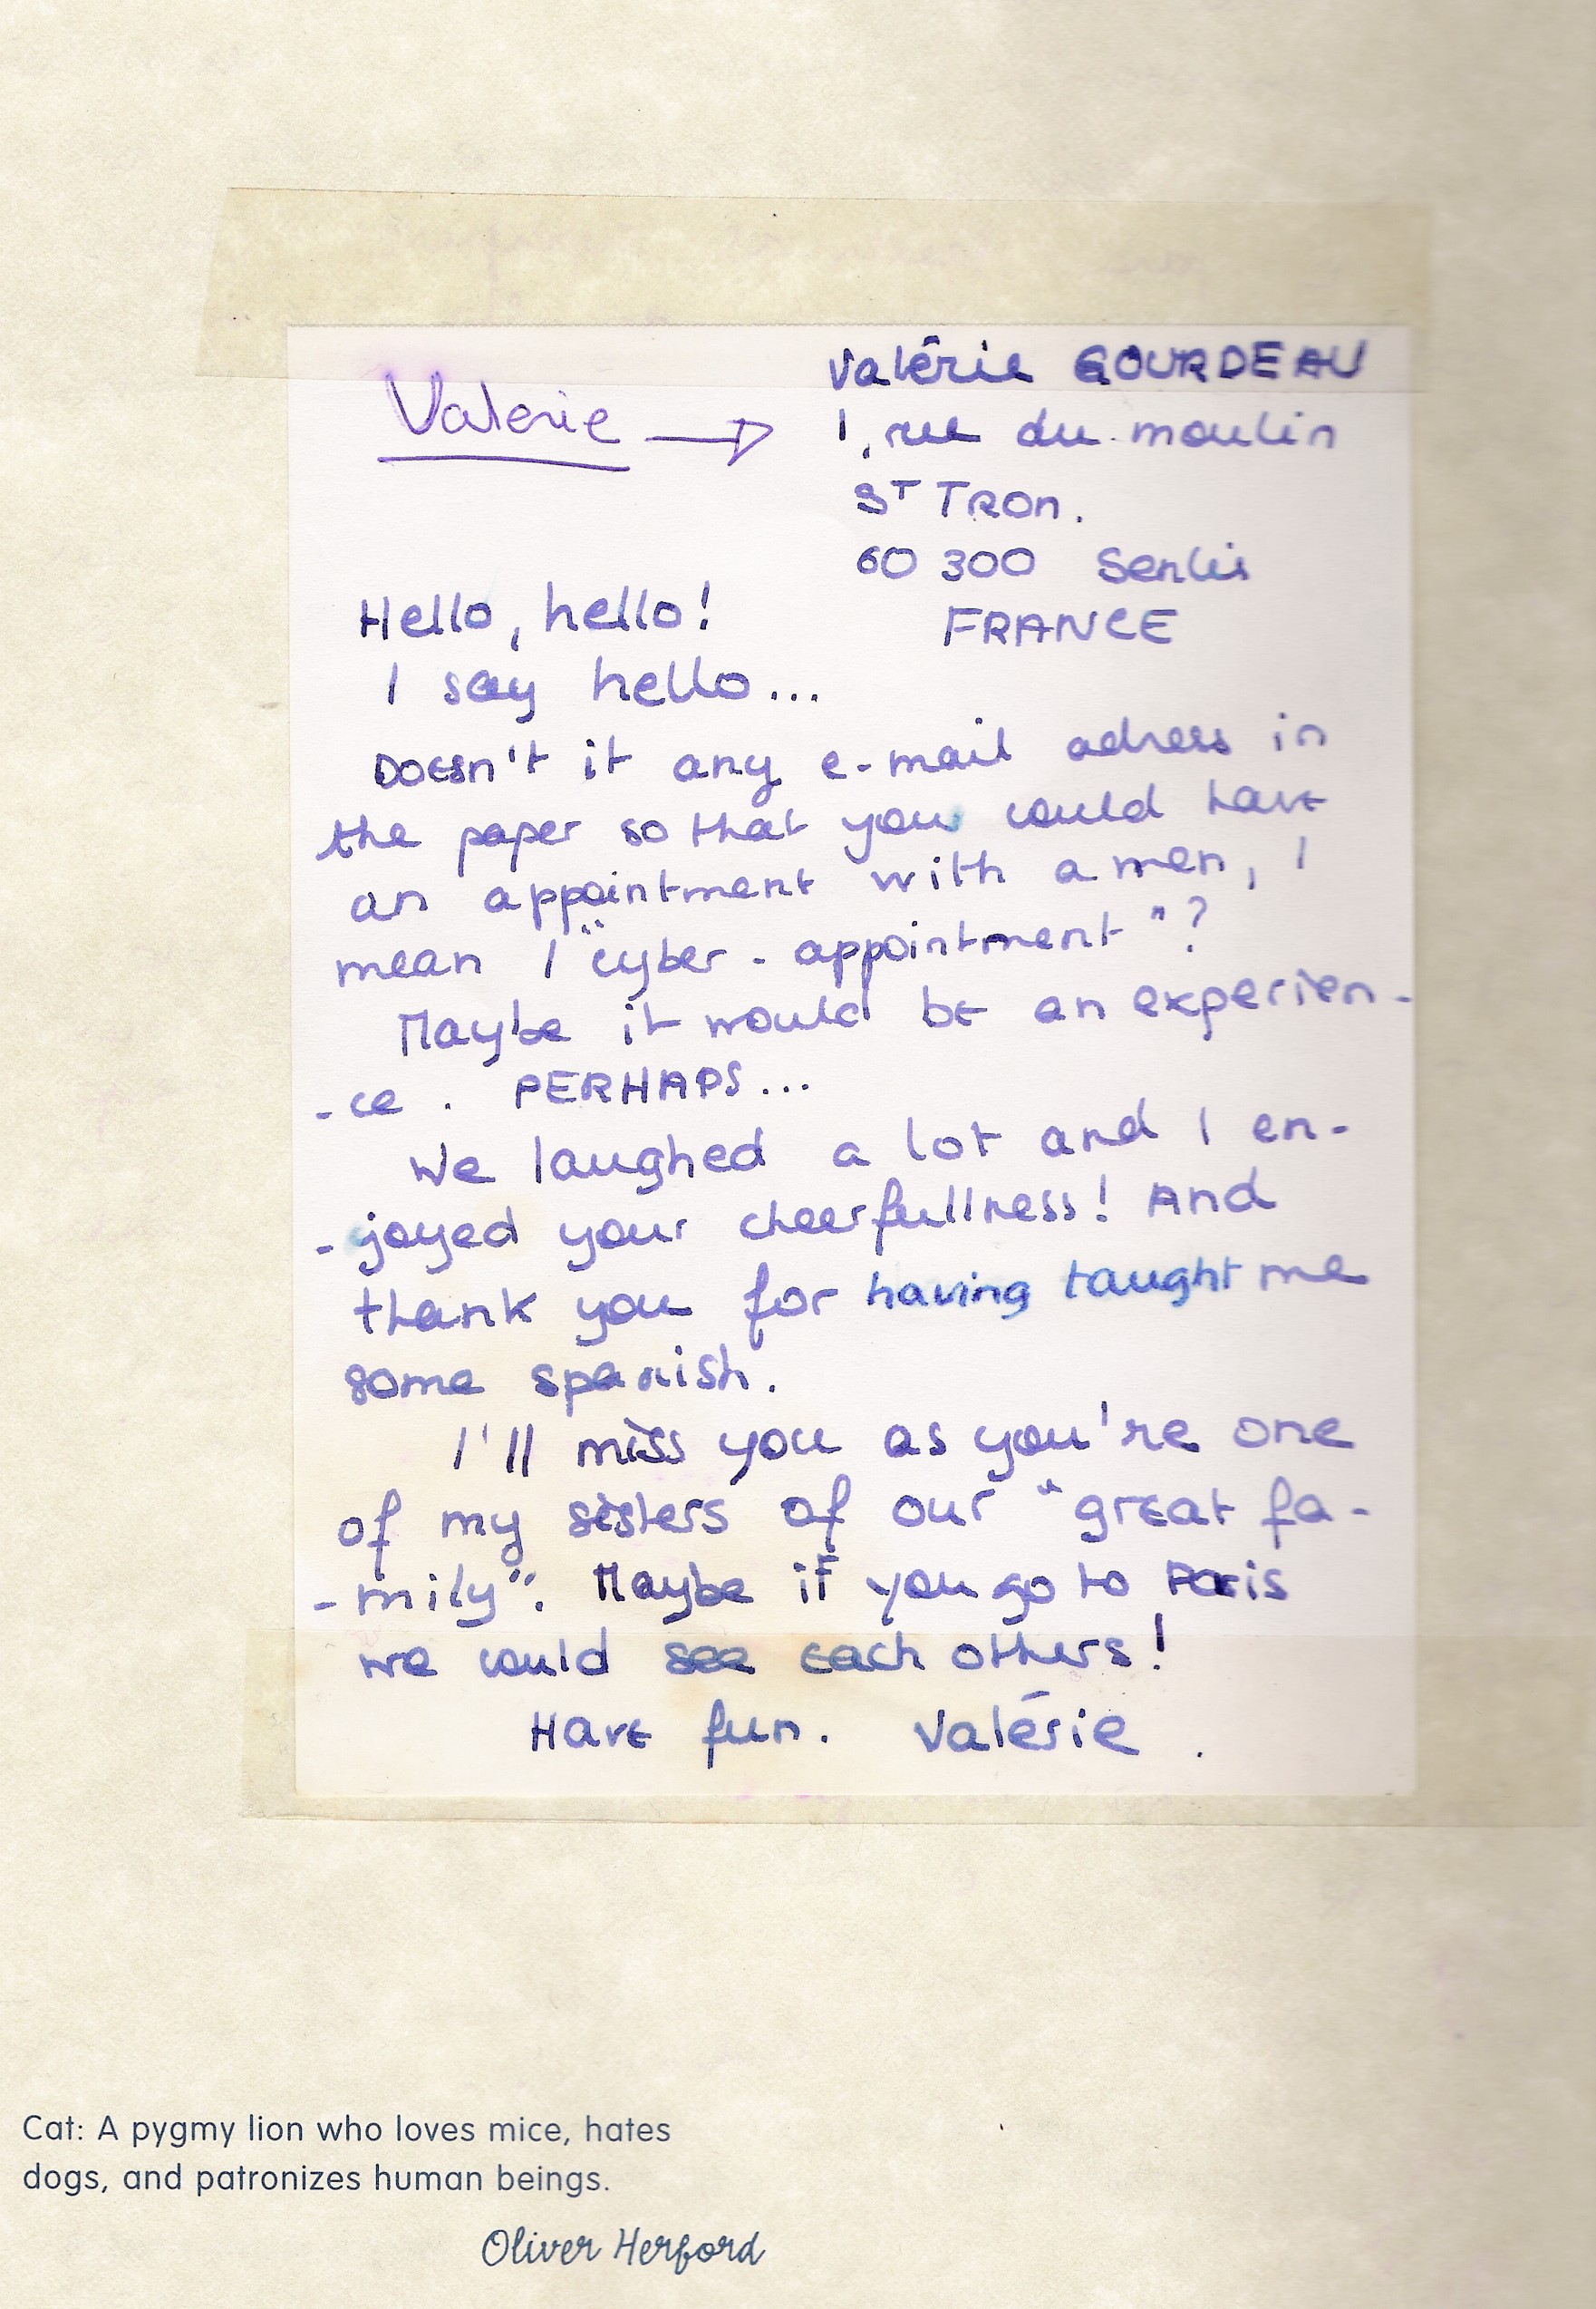 Valerie →
Valérie GOURDEAU
1, rue du moulin
ST TRON.
60 300 Senlis
FRANCE
Hello, hello!
I say hello...
Doesn't it any e-mail adress in
the paper so that you could have
an appointment with a men, I
mean I "cyber - appointment"?
Maybe it would be an experien-
-ce . PERHAPS...
We laughed a lot and I en-
-joyed your cheerfullness! And
thank you for having taught me
some spanish.
I'll miss you as you're one
of my sisters of our "great fa-
-mily". Maybe if you go to Paris
we could see each others!
Have fun. Valérie .
Cat: A pygmy lion who loves mice, hates
dogs, and patronizes human beings.
Oliver Herford